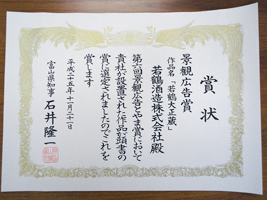 賞状
景観広告賞
作品名「若鶴大正蔵」
若鶴酒造株式会社殿
第六回景観広告とやま賞において
貴社が設置された作品が頭書の
賞に選定されましたのでこれを
賞します
平成二十五年十一月二十一日
富山県知事 石井隆一